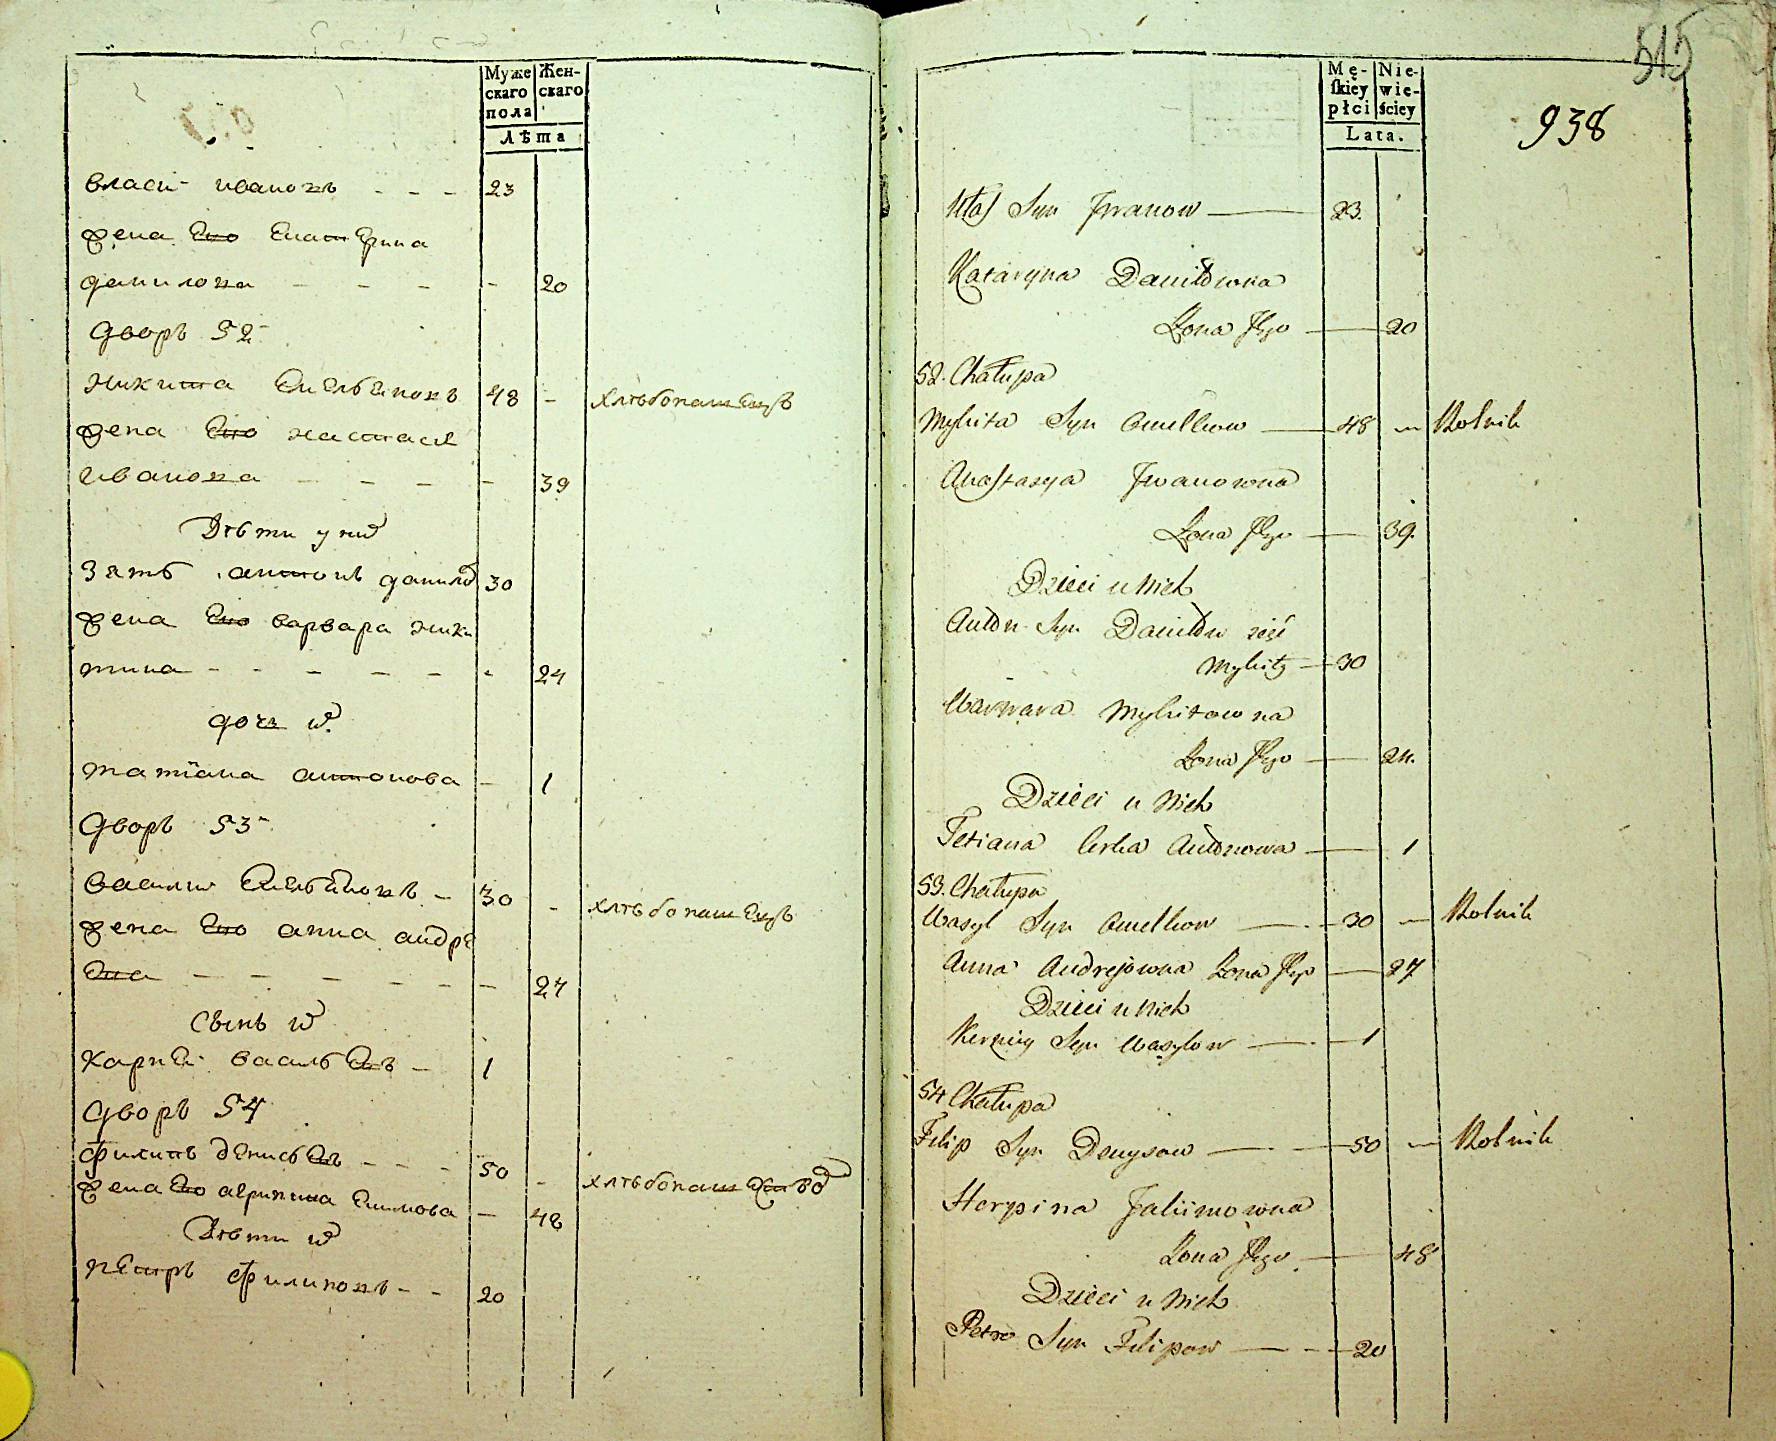 Муже Жен-
скаго скаго
пола
Лѣта
власъ ивановъ - - - 23
жена Его Екатерина
данилова - - - - 20
дворъ 52
Никита Емельяновъ 48 - хлѣбопашецъ
жена Его настася
иванова - - - - 39
Дѣти у них
Зять антонъ данилов 30
жена Его варвара ники
тина - - - - - - 24
дочь их
татіана антонова - 1
дворъ 53
василий Емельяновъ - 30 - хлѣбопашецъ
жена Его анна андре
Ева - - - - - - 27
Сынъ их
карпей васильевъ - 1
дворъ 54
филипъ денисьевъ - - - 50 - хлѣбопашецъ
жена Его агрипина Екимова - 48
Дѣти их
петръ филиповъ - - 20
515
938
Mę- Nie-
skiey wie-
płci ściey
Lata.
Własz Syn Jwanow — 23.
Kataryna Daniłowna
Żona Jego — 20
52. Chałupa
Mykita Syn Omelkow — 48 — Rolnik
Anastasya Jwanowna
Żona Jego — 39.
Dzieci u Nich
Anton Syn Daniłow zięć
Mykity — 30
Warwara Mykitowna
Żona Jego — 24.
Dzieci u Nich
Tetiana Corka Antonowa — 1
53. Chałupa
Wasyl Syn Omelkow — 30 — Rolnik
Anna Andrejowna Żona Jego — 27
Dzieci u Nich
Kerniey Syn Wasylow — 1
54 Chałupa
Filip Syn Denysow — 50 — Rolnik
Horpina Jakimowna
Żona Jego — 48
Dzieci u Nich
Petro Syn Filipow — 20